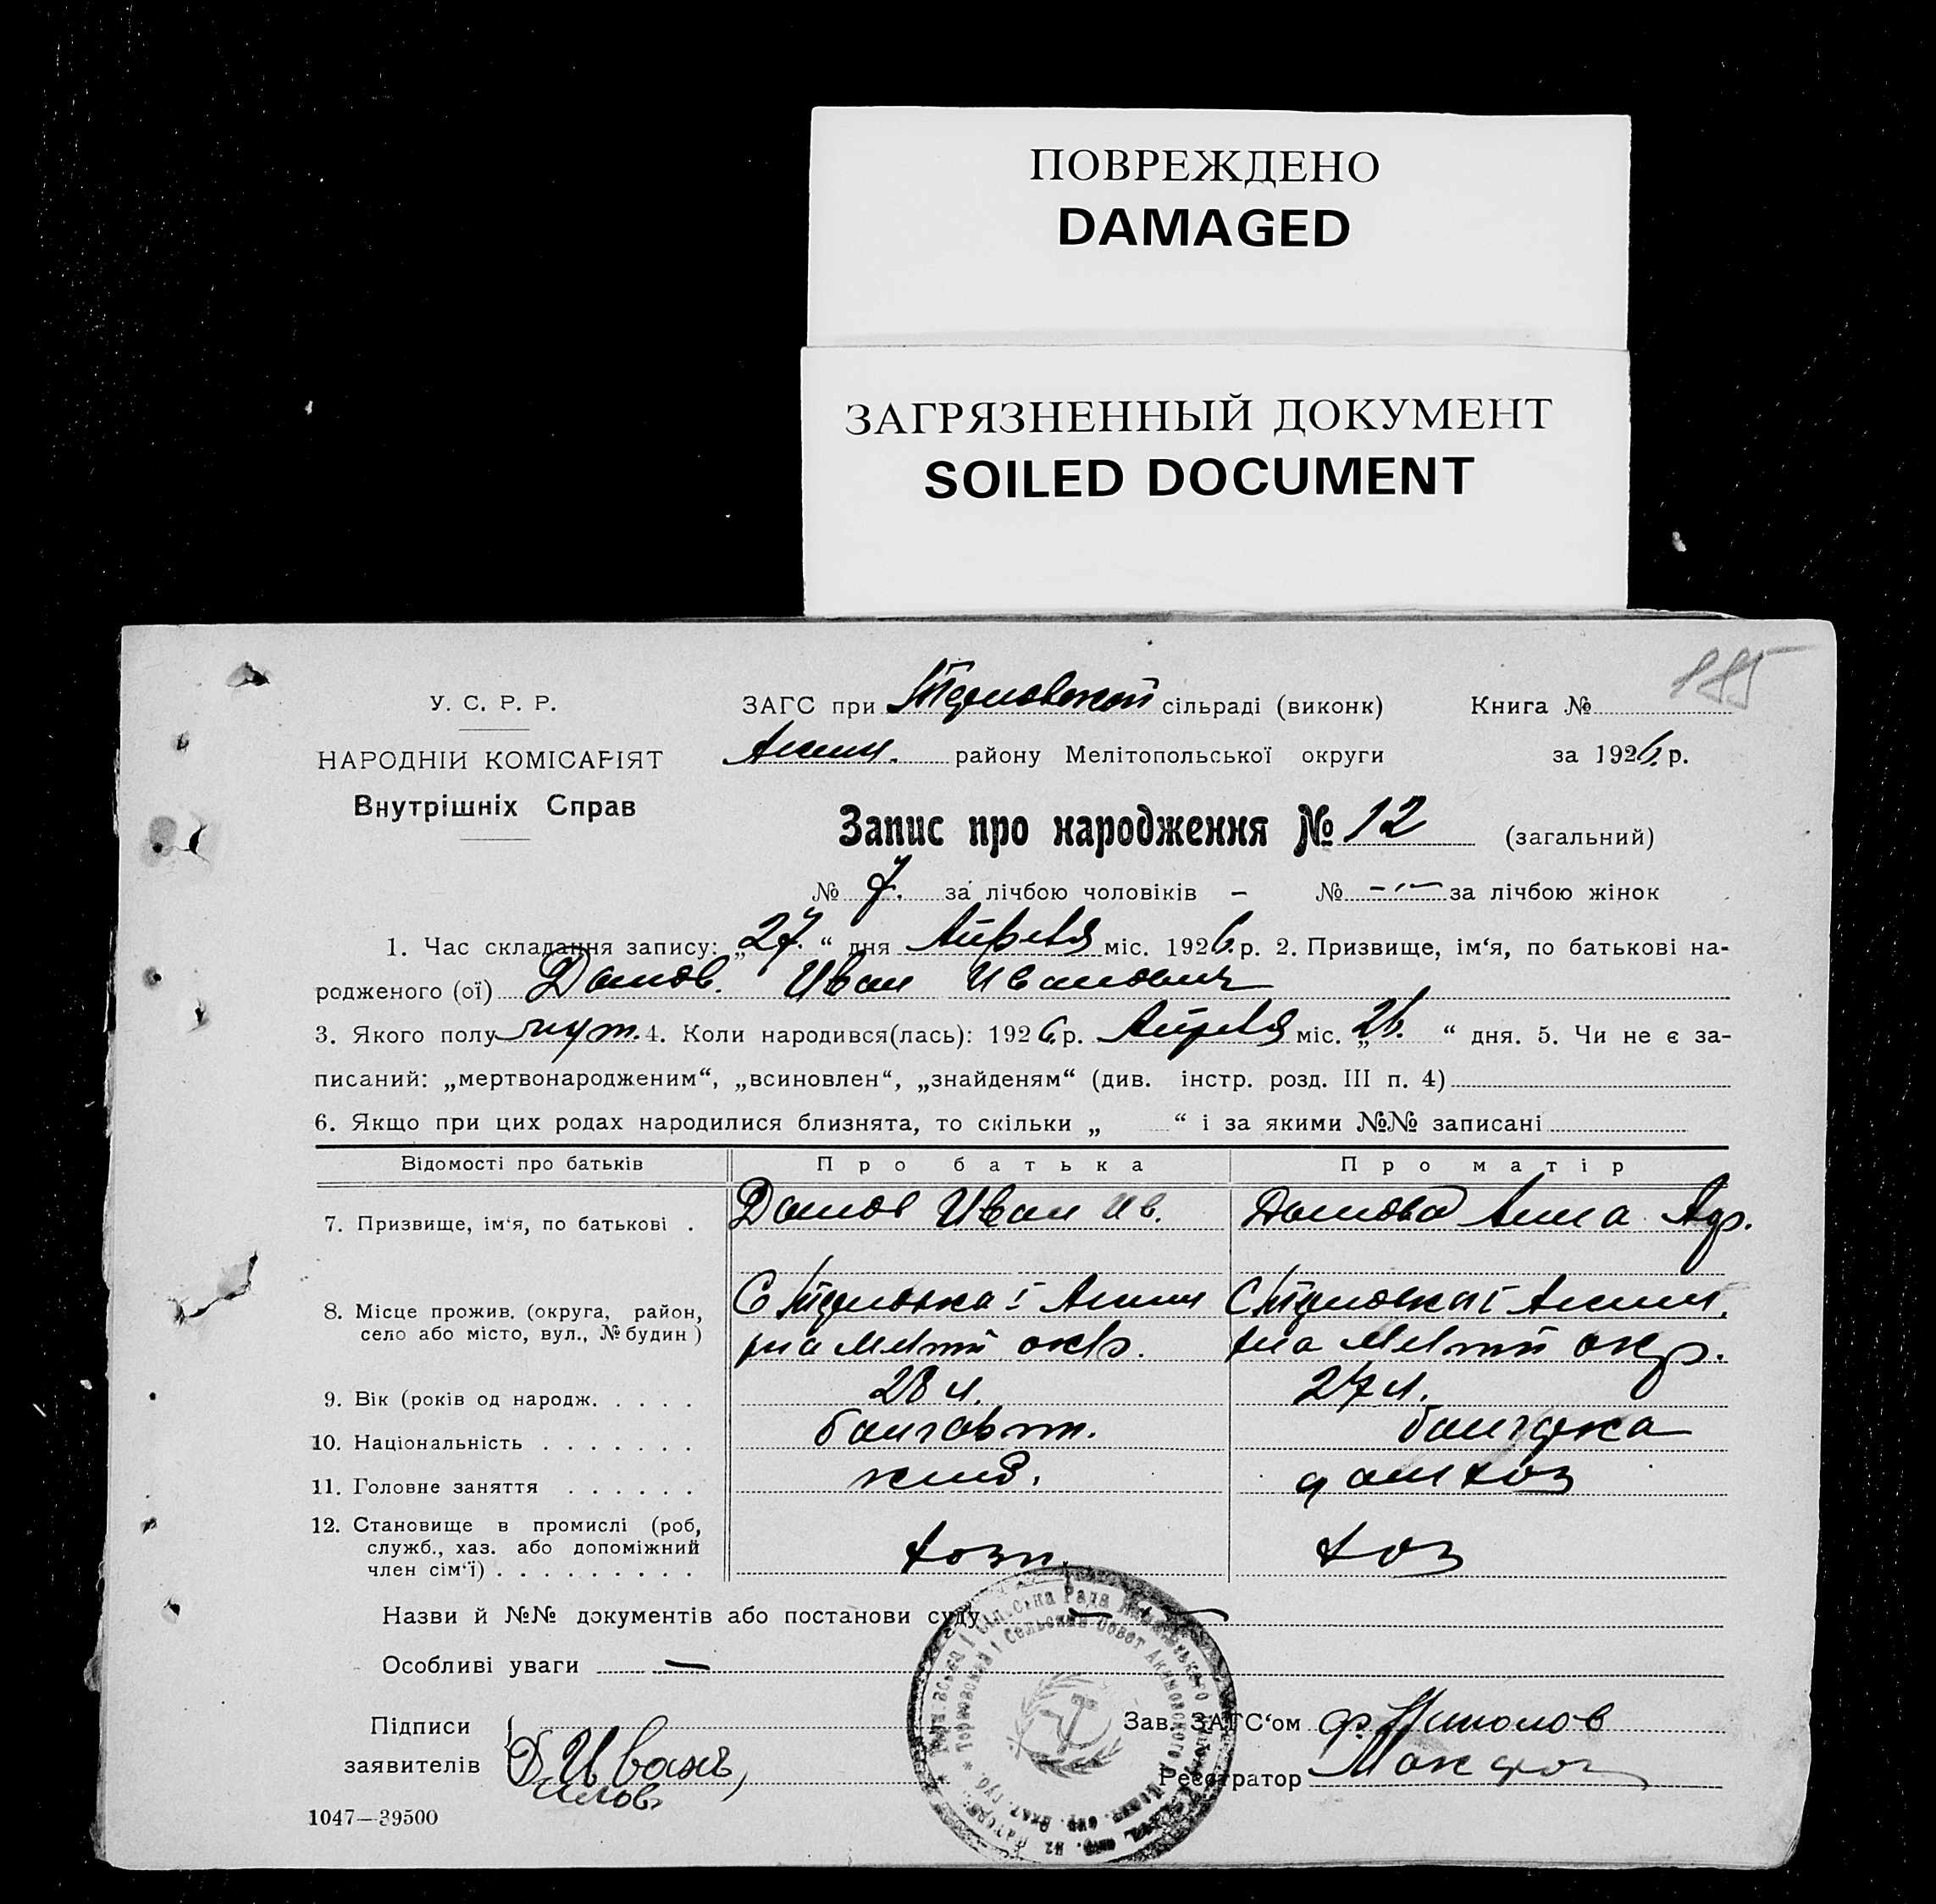 ПОВРЕЖДЕНО
DAMAGED
ЗАГРЯЗНЕННЫЙ ДОКУМЕНТ
SOILED DOCUMENT
У. С. Р. Р.
НАРОДНІЙ КОМІСАРІЯТ
Внутрішніх Справ
ЗАГС при сільраді (виконк) Книга №
Аким. району Мелітопольської округи за 1926 р.
Запис про народження № 12 (загальний)
№ 7. за лічбою чоловіків – № за лічбою жінок
1. Час складання запису: „27.“ дня Апреля міс. 1926 р. 2. Призвище, ім‘я, по батькові на-
родженого (ої) Данов. Иван Иванович
3. Якого полу муж. 4. Коли народився(лась): 1926 р. Апреля міс. „26. “ дня. 5. Чи не є за-
писаний: „мертвонародженим“, „всиновлен“, „знайденям“ (див. інстр. розд. III п. 4)
6. Якщо при цих родах народилися близнята, то скільки „ “ і за якими №№ записані
Відомості про батьків Про батька Про матір
7. Призвище, ім‘я, по батькові . Данов Иван Ив. Данова Анна
8. Місце прожив. (округа, район, село або місто, вул., № будин) С Аким С Аким.
р-на Мелит окр. р-на Мелит окр.
9. Вік (років од народж. . . . . 28 л. 27 л.
10. Національність . . . . . . . болгарин. болгарка
11. Головне заняття . . . . . . хлиб. дом хоз
12. Становище в промислі (роб, служб., хаз. або допоміжний член сім‘ї) . . . . . . . . . хозя. хоз
Назви й №№ документів або постанови суду —
Особливі уваги —
Підписи заявителів Д Иванъ,
Зав. ЗАГС‘ом
Реєстратор
1047—39500